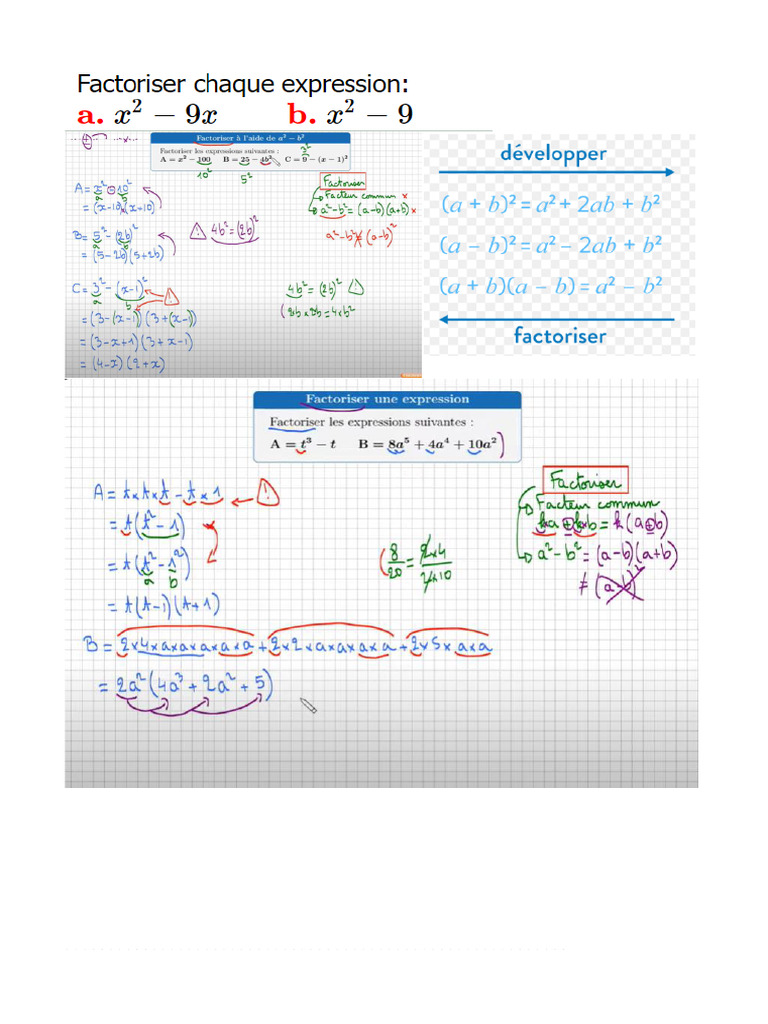 Factoriser chaque expression:
a. x² − 9x b. x² − 9
Factoriser à l'aide de a² − b²
Factoriser les expressions suivantes :
A = x² − 100 B = 25 − 4b² C = 9 − (x − 1)²
10² 5² 3²
A = x² − 10²
a b
= (x−10)(x+10)
B = 5² − (2b)²
a b
= (5−2b)(5+2b)
C = 3² − (x−1)²
a b
= (3−(x−1))(3+(x−1))
= (3−x+1)(3+x−1)
= (4−x)(2+x)
4b² = (2b)²
Factoriser
Facteur commun ×
a²−b² = (a−b)(a+b) ×
a²−b² ≠ (a−b)²
4b² = (2b)²
(2b×2b = 4×b²
développer
(a + b)² = a² + 2ab + b²
(a − b)² = a² − 2ab + b²
(a + b)(a − b) = a² − b²
factoriser
Factoriser une expression
Factoriser les expressions suivantes :
A = t³ − t B = 8a⁵ + 4a⁴ + 10a²
A = t×t×t − t×1
= t(t²−1)
= t(t²−1²)
a b
= t(t−1)(t+1)
B = 2×4×a×a×a×a×a + 2×2×a×a×a×a + 2×5×a×a
= 2a²(4a³ + 2a² + 5)
(8/20 = 2×4/2×10
Factoriser
Facteur commun
ka + kb = k(a+b)
a²−b² = (a−b)(a+b)
≠ (a−b)²